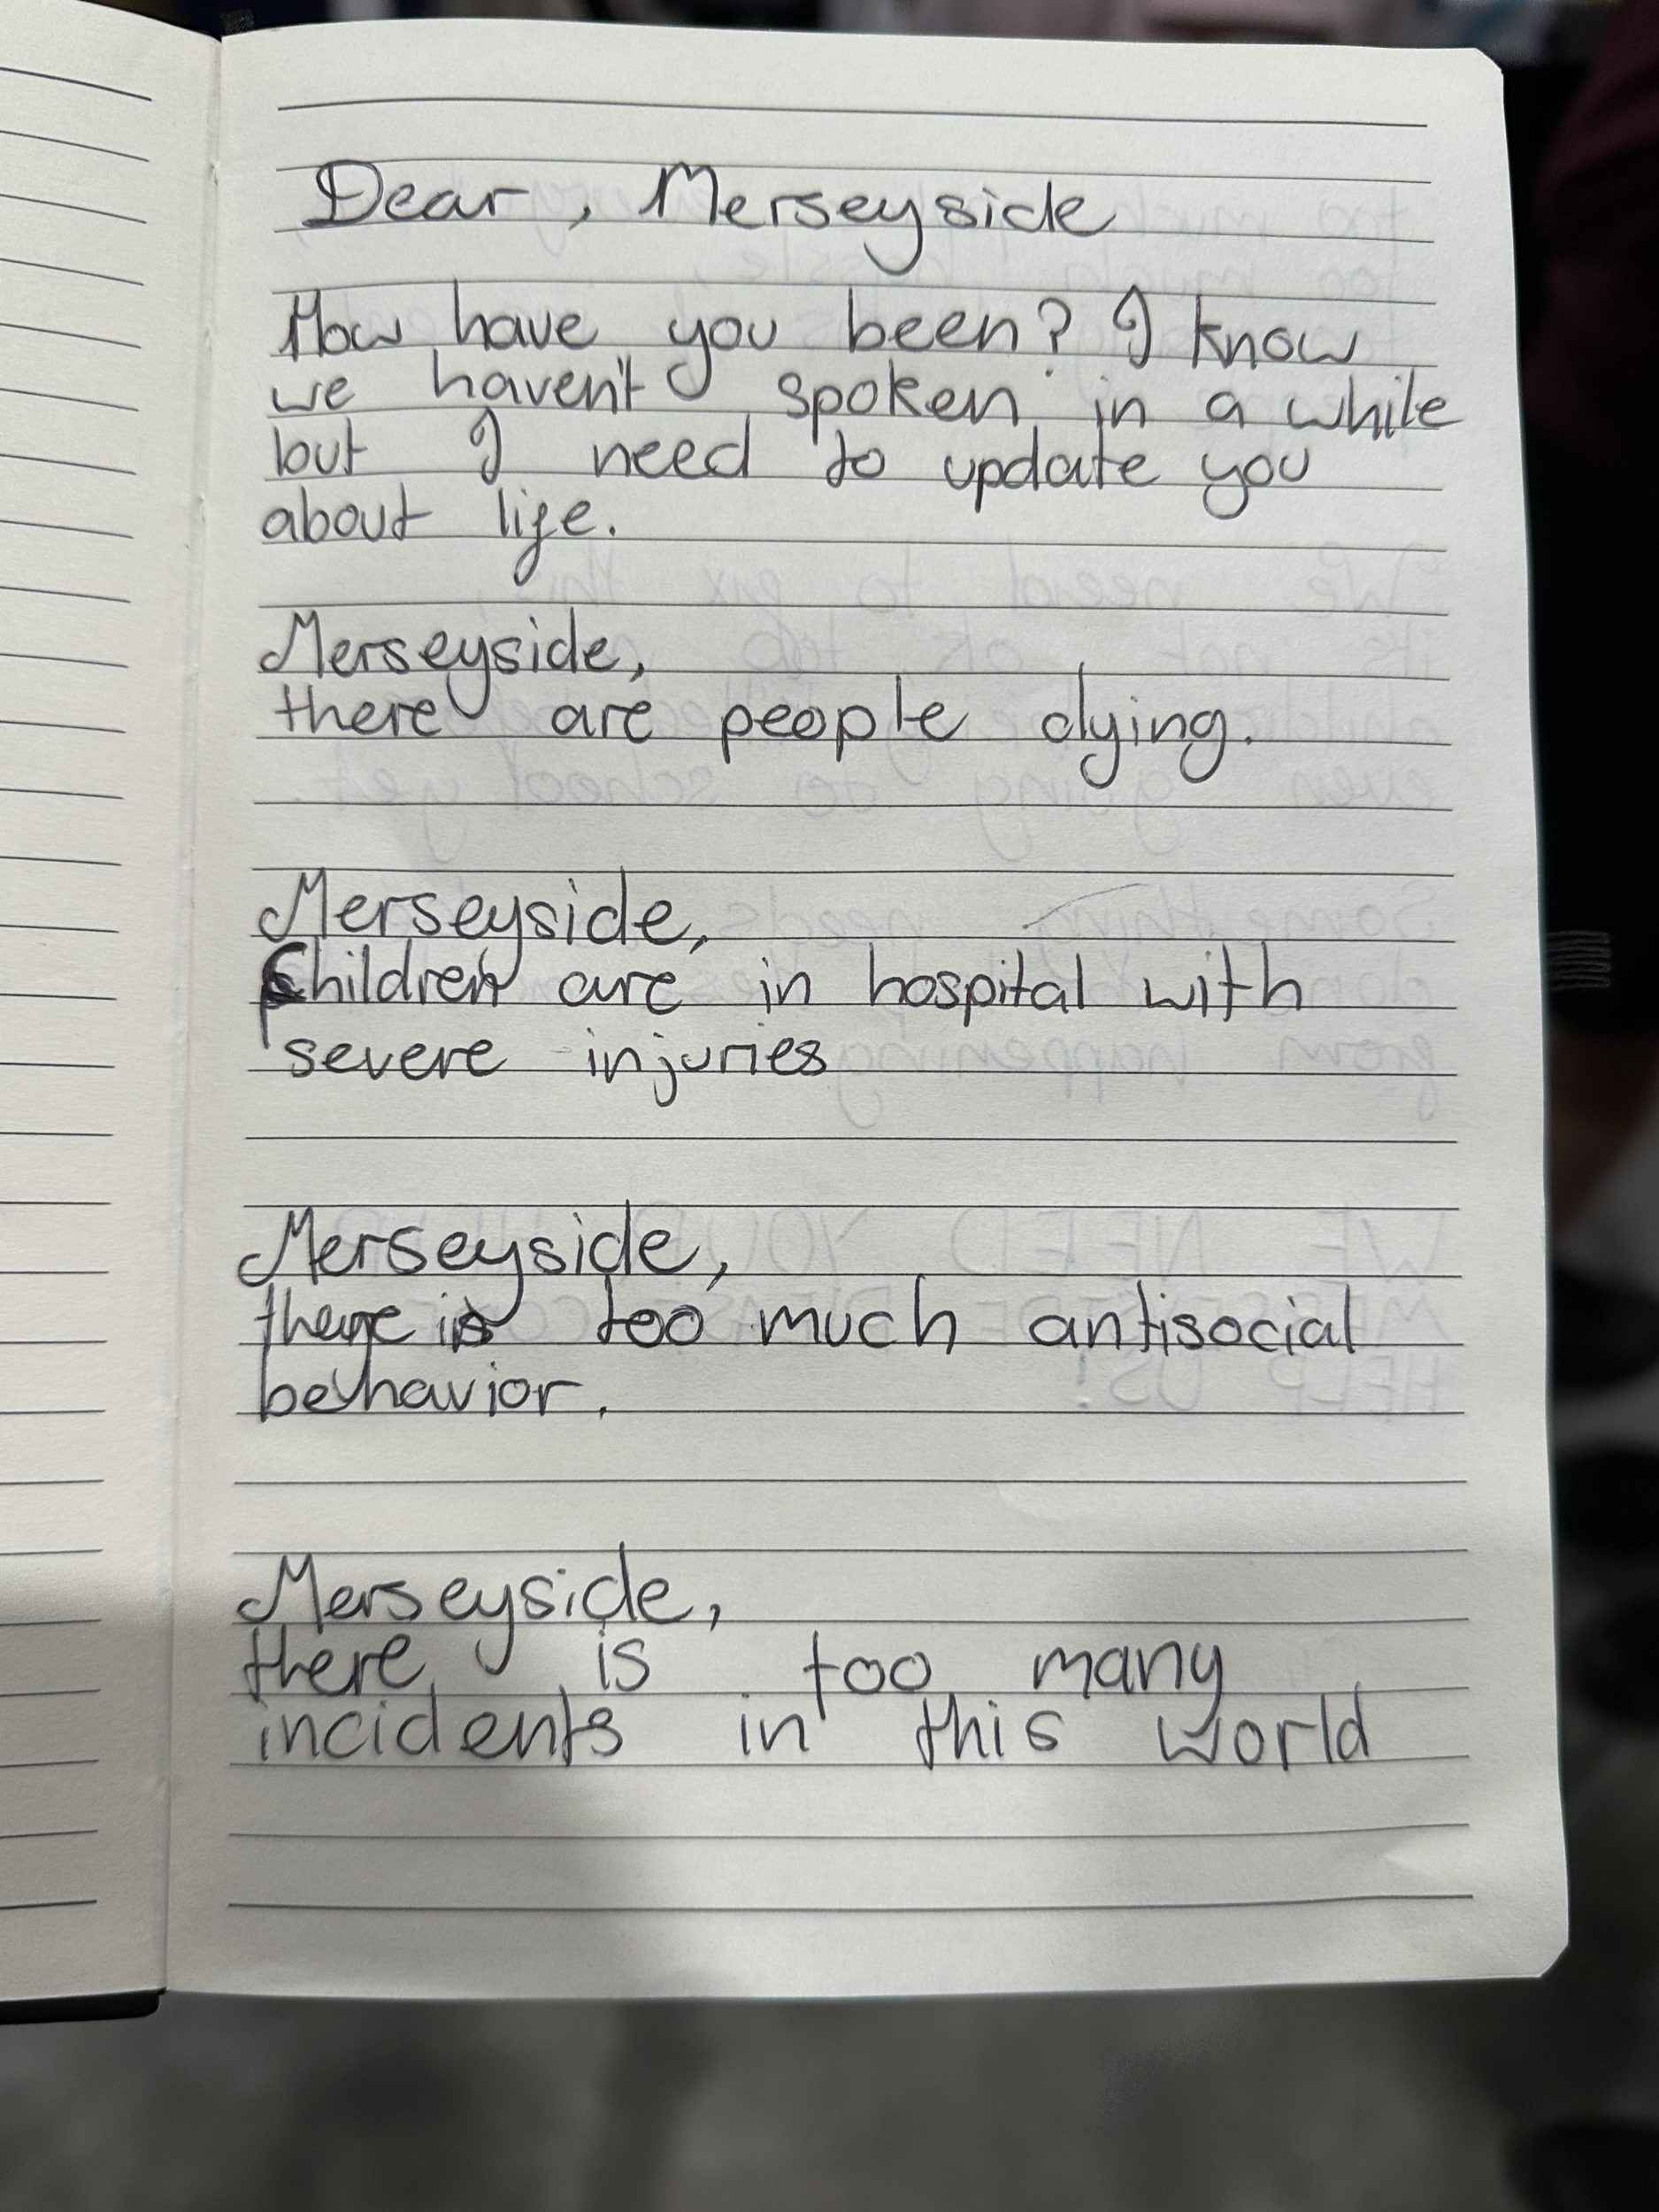 Dear, Merseyside
How have you been? I know
we haven't spoken in a while
but I need to update you
about life.
Merseyside,
there are people dying.
Merseyside,
Children are in hospital with
severe injuries
Merseyside,
there is too much antisocial
behavior.
Merseyside,
there is too many
incidents in this world